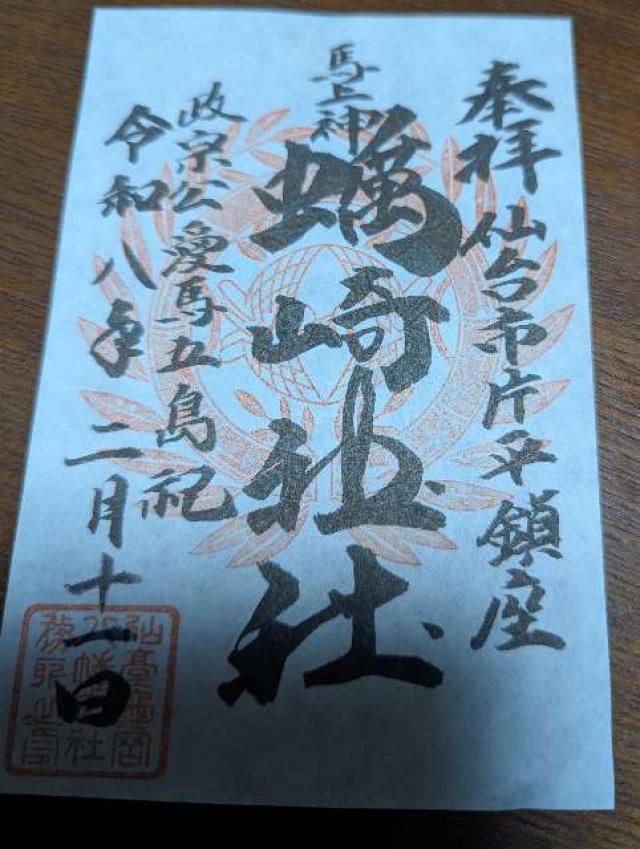 奉拝 仙台市片平鎮座
馬上神
蠣崎神社
政宗公愛馬五島祀
令和八年二月十一日